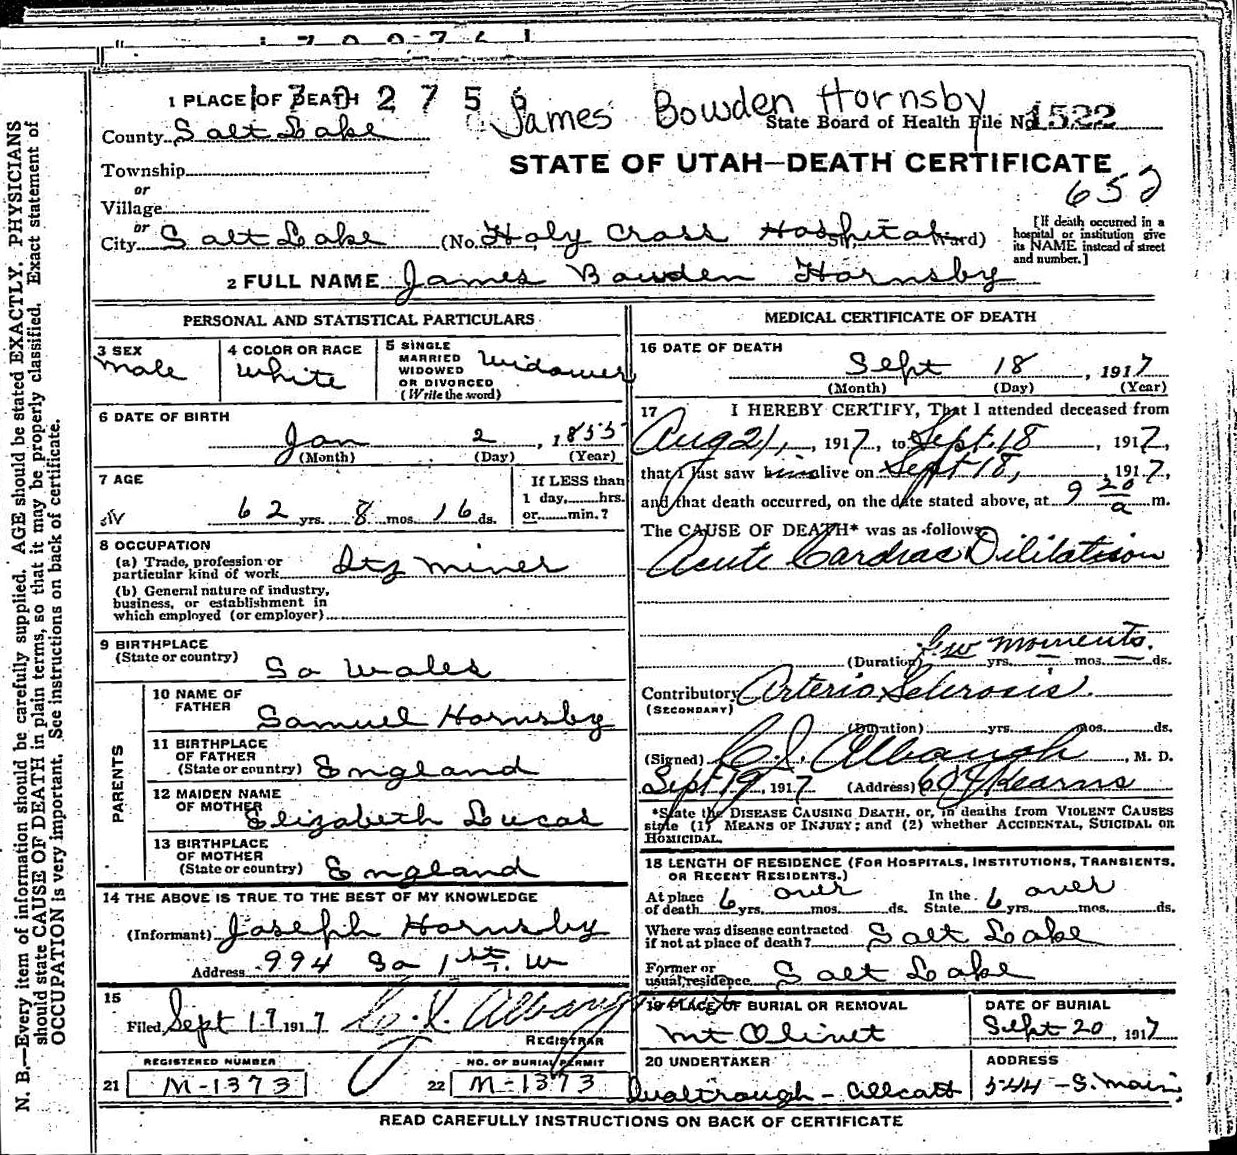 1 PLACE OF DEATH
2 7 5
James Bowden Hornsby
County Salt Lake
State Board of Health File No. 1522
Township
STATE OF UTAH—DEATH CERTIFICATE
or
652
Village
or
City Salt Lake (No. Holy Cross Hospital St. Ward)
[If death occurred in a hospital or institution give its NAME instead of street and number.]
2 FULL NAME James Bowden Hornsby
PERSONAL AND STATISTICAL PARTICULARS
3 SEX
male
4 COLOR OR RACE
White
5 SINGLE
MARRIED
WIDOWED
OR DIVORCED
(Write the word)
Widower
6 DATE OF BIRTH
Jan 2, 1855
(Month) (Day) (Year)
7 AGE
62 yrs. 8 mos. 16 ds.
If LESS than
1 day, hrs.
or min.?
8 OCCUPATION
(a) Trade, profession or
particular kind of work miner
(b) General nature of industry,
business, or establishment in
which employed (or employer)
9 BIRTHPLACE
(State or country)
So Wales
PARENTS
10 NAME OF
FATHER
Samuel Hornsby
11 BIRTHPLACE
OF FATHER
(State or country) England
12 MAIDEN NAME
OF MOTHER
Elizabeth Lucas
13 BIRTHPLACE
OF MOTHER
(State or country) England
14 THE ABOVE IS TRUE TO THE BEST OF MY KNOWLEDGE
(Informant) Joseph Hornsby
Address 994 So 1st W
15
Filed Sept 17, 1917
REGISTRAR
REGISTERED NUMBER
21 M-1373
NO. OF BURIAL PERMIT
22 M-1373
MEDICAL CERTIFICATE OF DEATH
16 DATE OF DEATH
Sept 18, 1917
(Month) (Day) (Year)
17 I HEREBY CERTIFY, That I attended deceased from
Aug 21, 1917, to Sept. 18, 1917,
that I last saw him alive on Sept 18, 1917,
and that death occurred, on the date stated above, at 9 20 a m.
The CAUSE OF DEATH* was as follows:
Acute Cardiac Dililatison
few moments.
(Duration) yrs. mos. ds.
Contributory Arterio Sclerosis.
(SECONDARY)
(Duration) yrs. mos. ds.
(Signed) C. J. Albaugh, M. D.
Sept 19, 1917 (Address) 604 Kearns
*State the DISEASE CAUSING DEATH, or, in deaths from VIOLENT CAUSES
state (1) MEANS OF INJURY; and (2) whether ACCIDENTAL, SUICIDAL OR
HOMICIDAL.
18 LENGTH OF RESIDENCE (FOR HOSPITALS, INSTITUTIONS, TRANSIENTS,
OR RECENT RESIDENTS.)
At place
of death 6 over yrs. mos. ds.
In the
State 6 over yrs. mos. ds.
Where was disease contracted
if not at place of death? Salt Lake
Former or
usual residence Salt Lake
19 PLACE OF BURIAL OR REMOVAL
Mt Olivet
DATE OF BURIAL
Sept 20, 1917
20 UNDERTAKER
ADDRESS
544 - S. Main
READ CAREFULLY INSTRUCTIONS ON BACK OF CERTIFICATE
N. B.—Every item of information should be carefully supplied. AGE should be stated EXACTLY. PHYSICIANS
should state CAUSE OF DEATH in plain terms, so that it may be properly classified. Exact statement of
OCCUPATION is very important. See instructions on back of certificate.